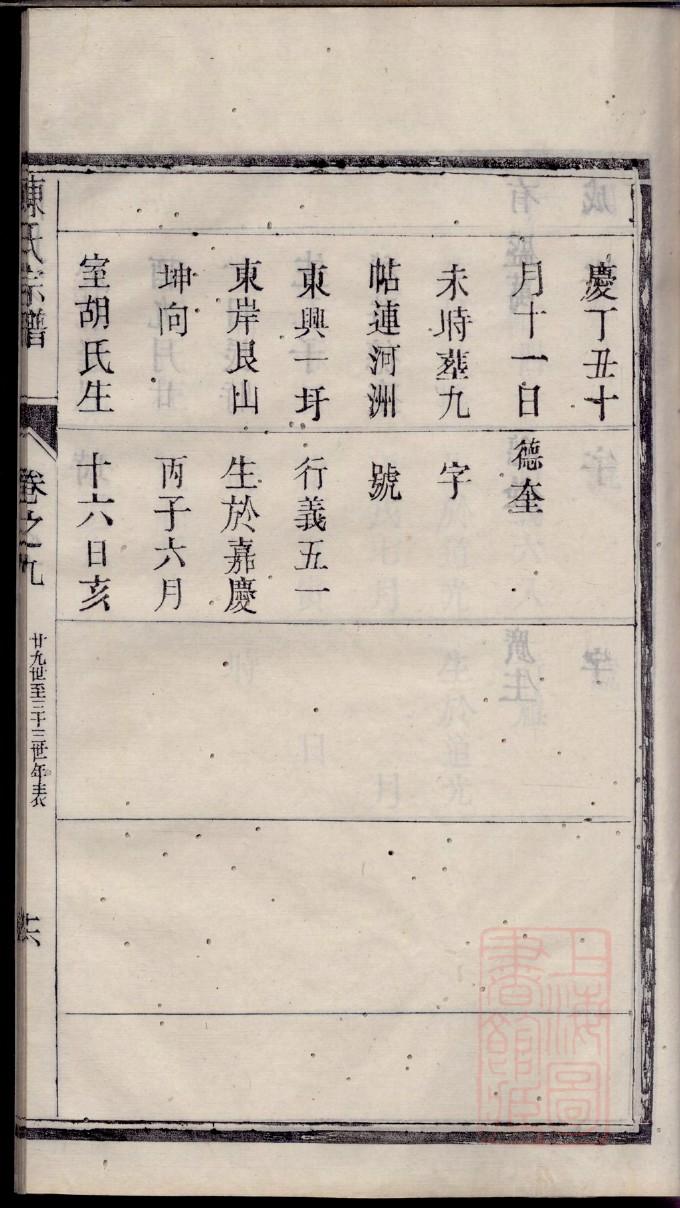 慶丁丑十
月十一日
未時塟九
帖連河洲
東興一圩
東岸艮山
坤向
室胡氏生
德奎
字
號
行義五一
生於嘉慶
丙子六月
十六日亥
陳氏宗譜
卷之九
廿九世至三十三世年表
上海圖書館藏